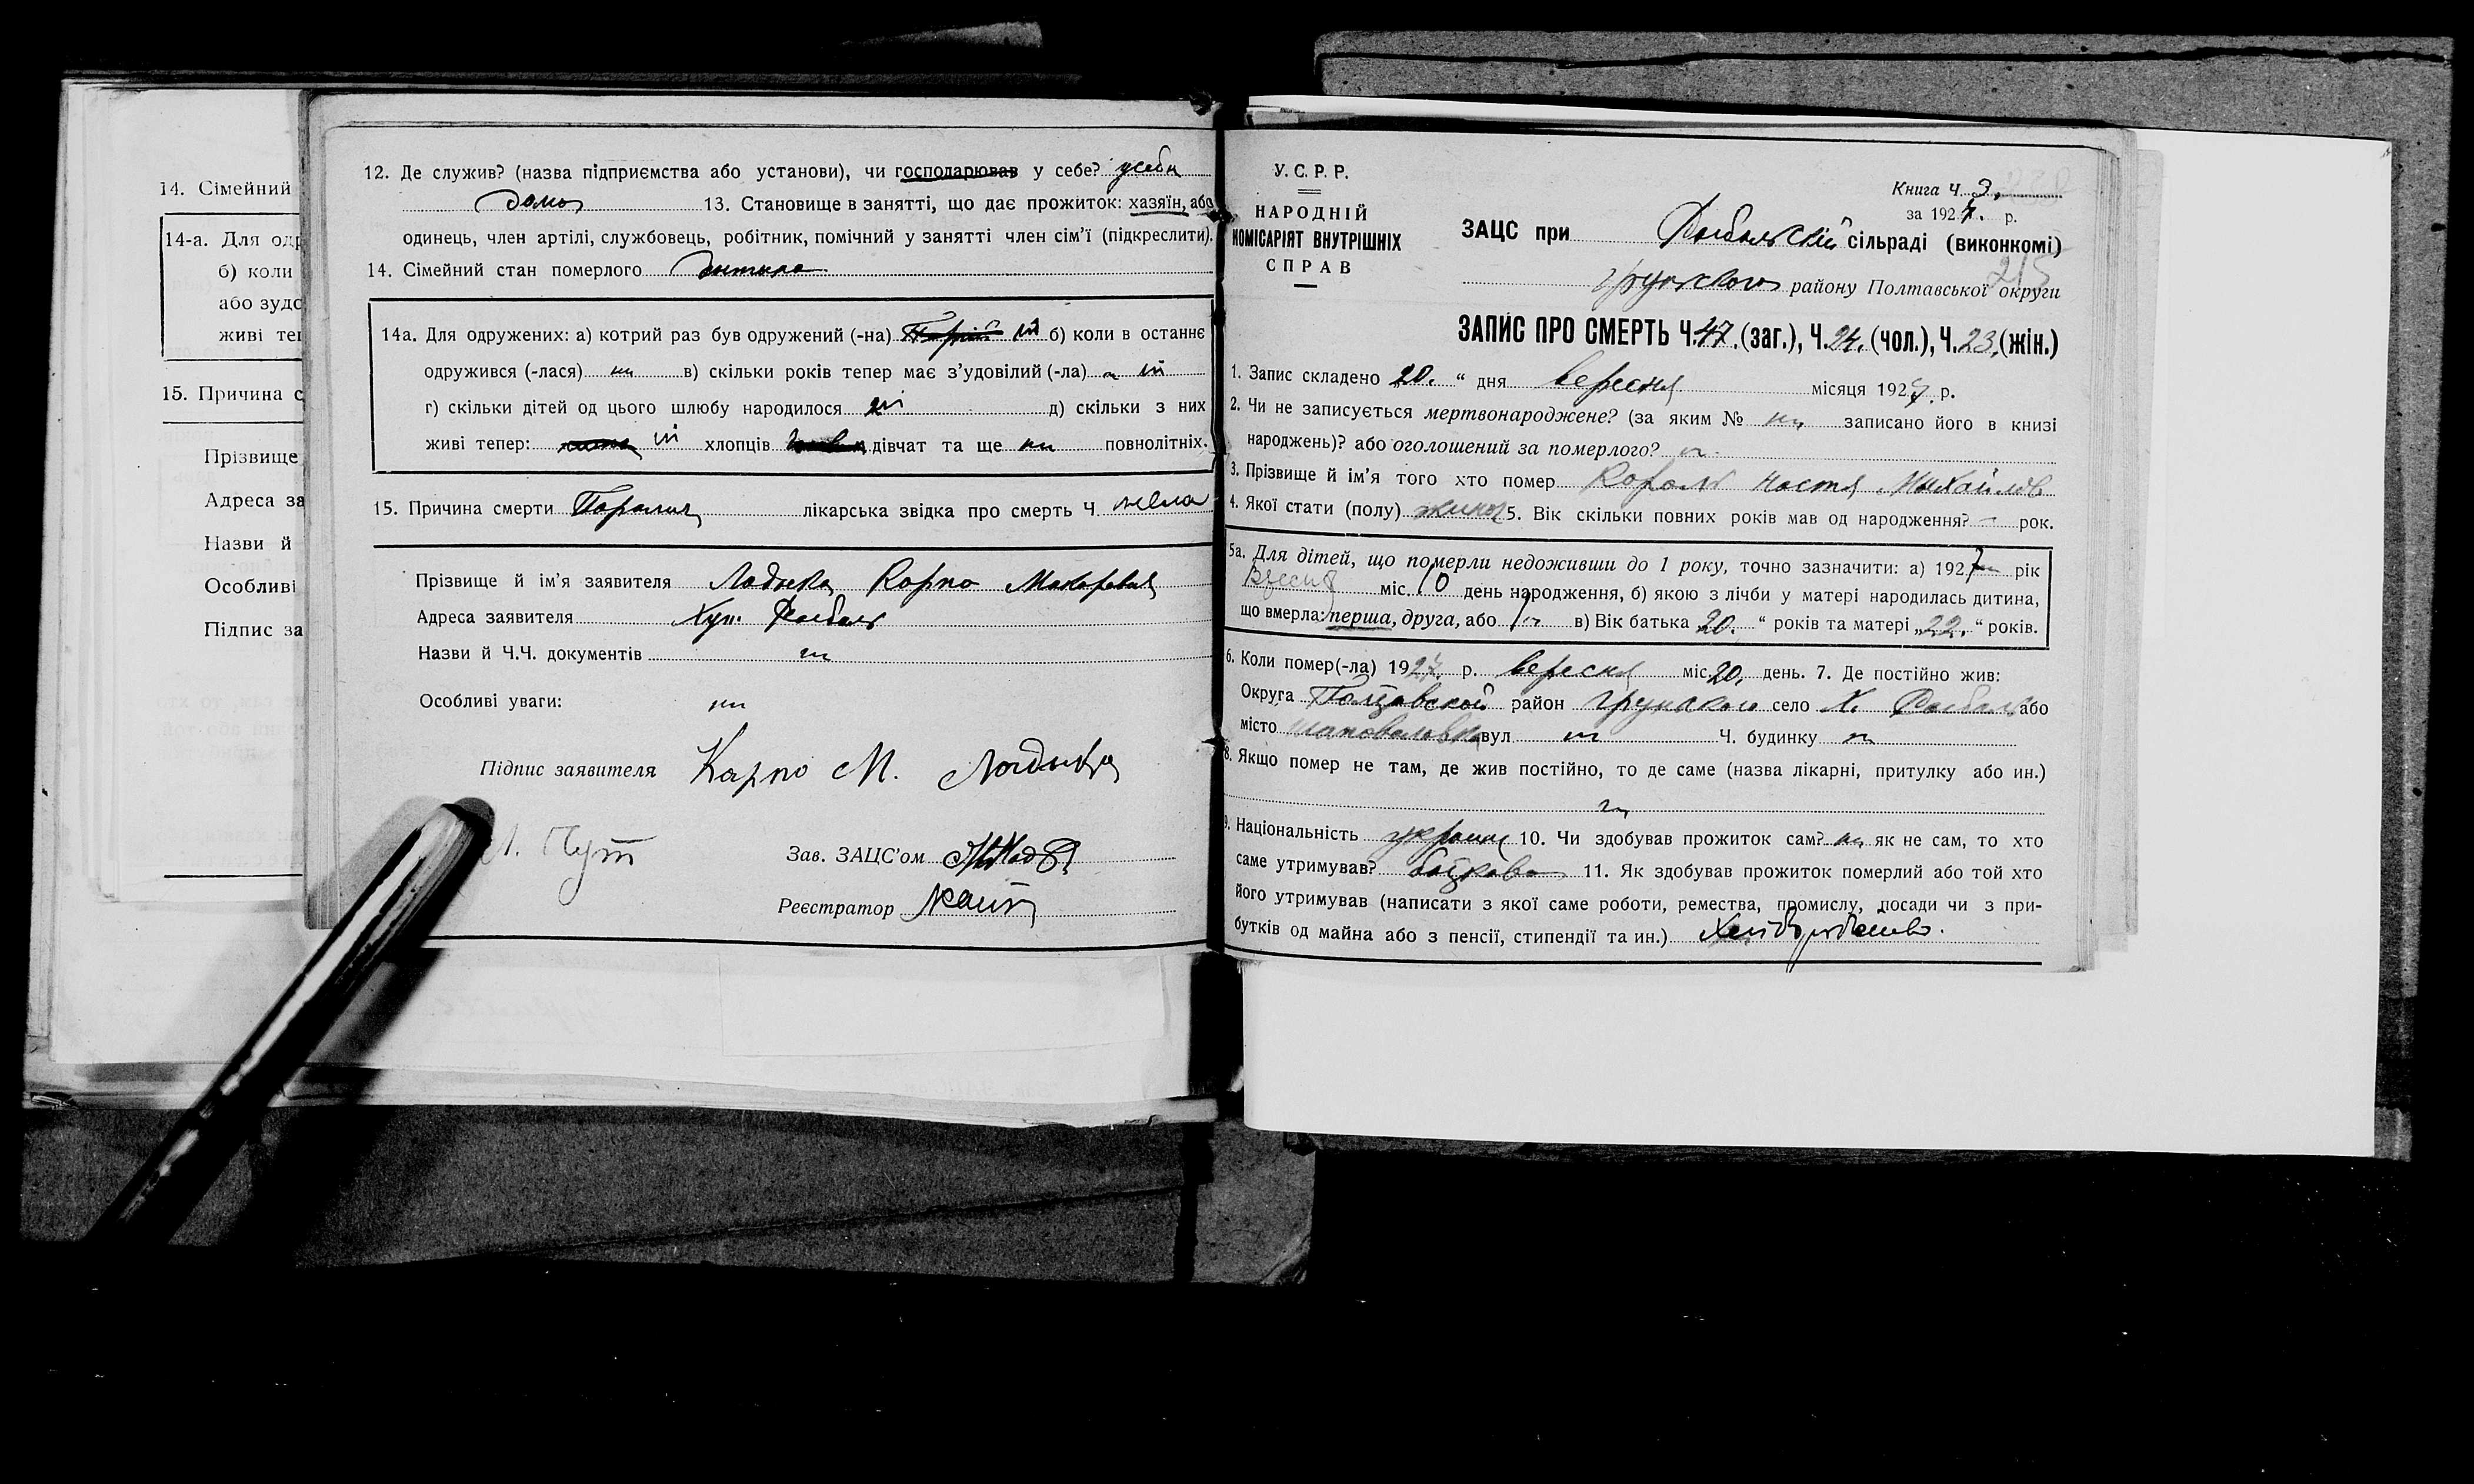 14. Сімейний
14-а. Для одр
б) коли
або зудо
живі теп
15. Причина с
Прізвище
Адреса за
Назви й
Особливі
Підпис за
12. Де служив? (назва підприємства або установи), чи господарював у себе? у себи
дома 13. Становище в занятті, що дає прожиток: хазяїн, або
одинець, член артілі, службовець, робітник, помічний у занятті член сім’ї (підкреслити).
14. Сімейний стан померлого дитина
14а. Для одружених: а) котрий раз був одружений (-на) ні б) коли в останнє
одружився (-лася) ні в) скільки років тепер має з’удовілий (-ла) ні
г) скільки дітей од цього шлюбу народилося ні д) скільки з них
живі тепер: ні хлопців дівчат та ще ні повнолітніх.
15. Причина смерти лікарська звідка про смерть Ч. нема
Прізвище й ім’я заявителя Ладыка Карпо Макарович
Адреса заявителя Хут.
Назви й Ч.Ч. документів ні
Особливі уваги: ні
Підпис заявителя Карпо М. Ладика
Зав. ЗАЦС’ом
Реєстратор
У.С.Р.Р.
НАРОДНІЙ
КОМІСАРІЯТ ВНУТРІШНІХ
СПРАВ
Книга Ч. 3.
за 1927. р.
ЗАЦС при сільраді (виконкомі)
215
Грунського району Полтавської округи
ЗАПИС ПРО СМЕРТЬ Ч. 47. (заг.), Ч. 24. (чол.), Ч. 23. (жін.)
1. Запис складено 20. “ дня вересня місяця 1927. р.
2. Чи не записується мертвонароджене? (за яким № ні записано його в книзі
народжень)? або оголошений за померлого? ні
3. Прізвище й ім’я того хто помер Король Настя Михайлов
4. Якої стати (полу) жіноч 5. Вік скільки повних років мав од народження? – рок.
5а. Для дітей, що померли недоживши до 1 року, точно зазначити: а) 1927 рік
міс. 10 день народження, б) якою з лічби у матері народилась дитина,
що вмерла: перша, друга, або в) Вік батька 20. “ років та матері „22. “ років.
6. Коли помер(-ла) 1927. р. вересня міс. 20. день. 7. Де постійно жив:
Округа Полтавской район Грунского село Х. або
місто вул. ні Ч. будинку ні
8. Якщо помер не там, де жив постійно, то де саме (назва лікарні, притулку або ин.)
ні
9. Національність україн 10. Чи здобував прожиток сам? ні як не сам, то хто
саме утримував? батьково 11. Як здобував прожиток померлий або той хто
його утримував (написати з якої саме роботи, ремества, промислу, посади чи з при-
бутків од майна або з пенсії, стипендії та ин.) Хлібуробство.